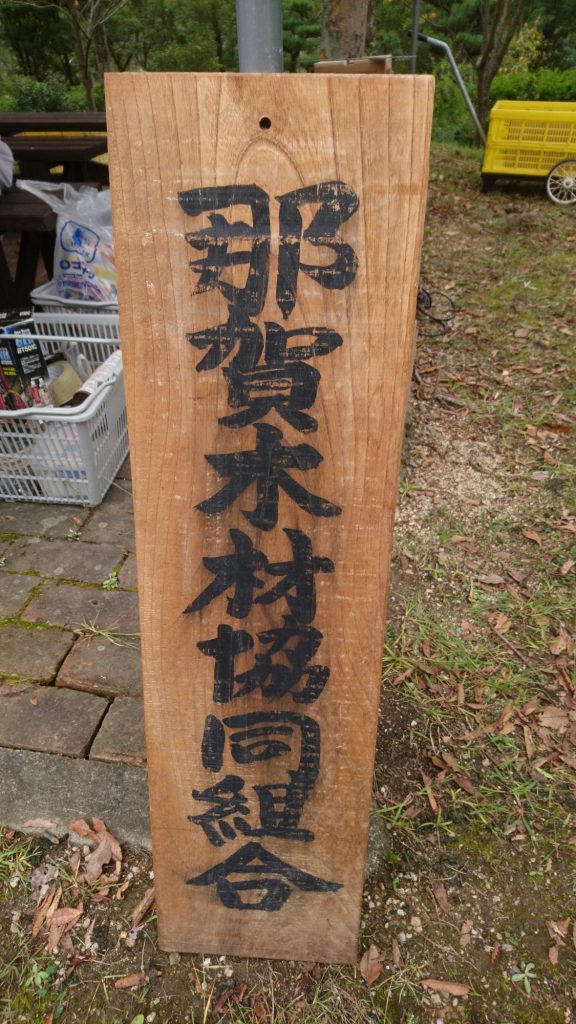 那賀木材協同組合